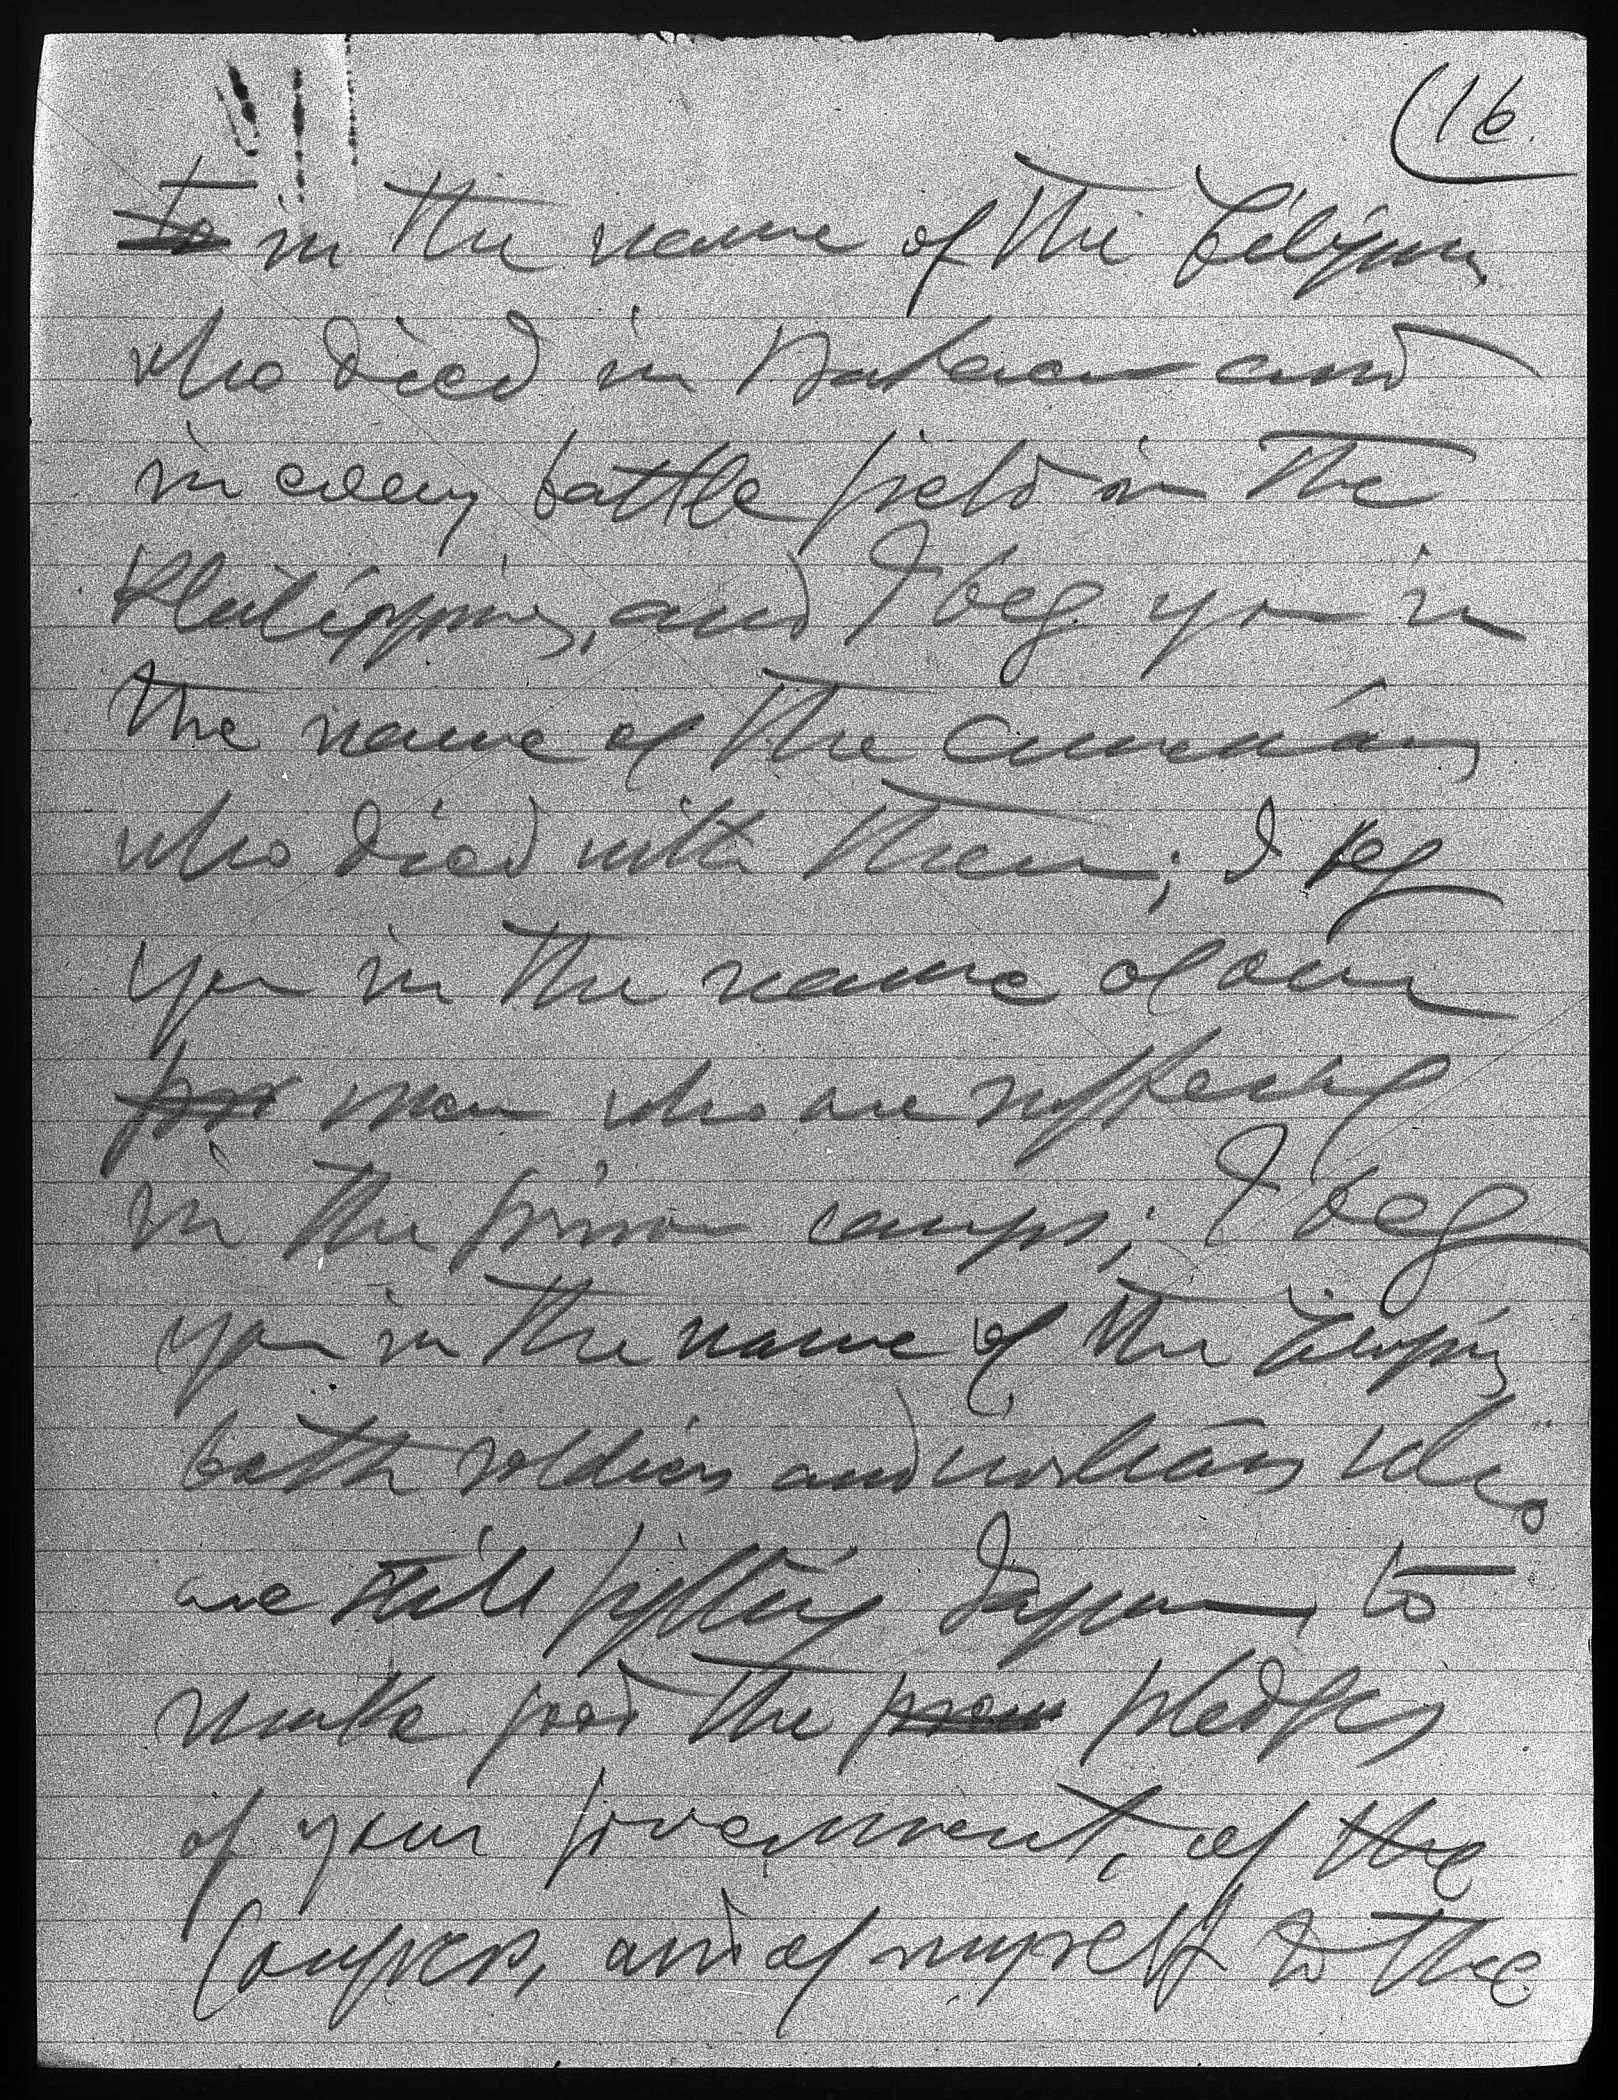 16.
to in the name of the Filipinos
who died in Bataan and
in every battle field in the
Philippines, and I beg you in
the name of the Americans
who died with them; I beg
you in the name of our
poor men who are suffering
in the prison camps; I beg
you in the name of the Filipinos
both soldiers and civilians who
are still fighting Japan, to
make good the pledges
of your government, of the
Congress, and of myself to the